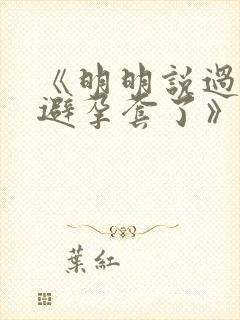 《明明說過
避孕套了》
葉紅